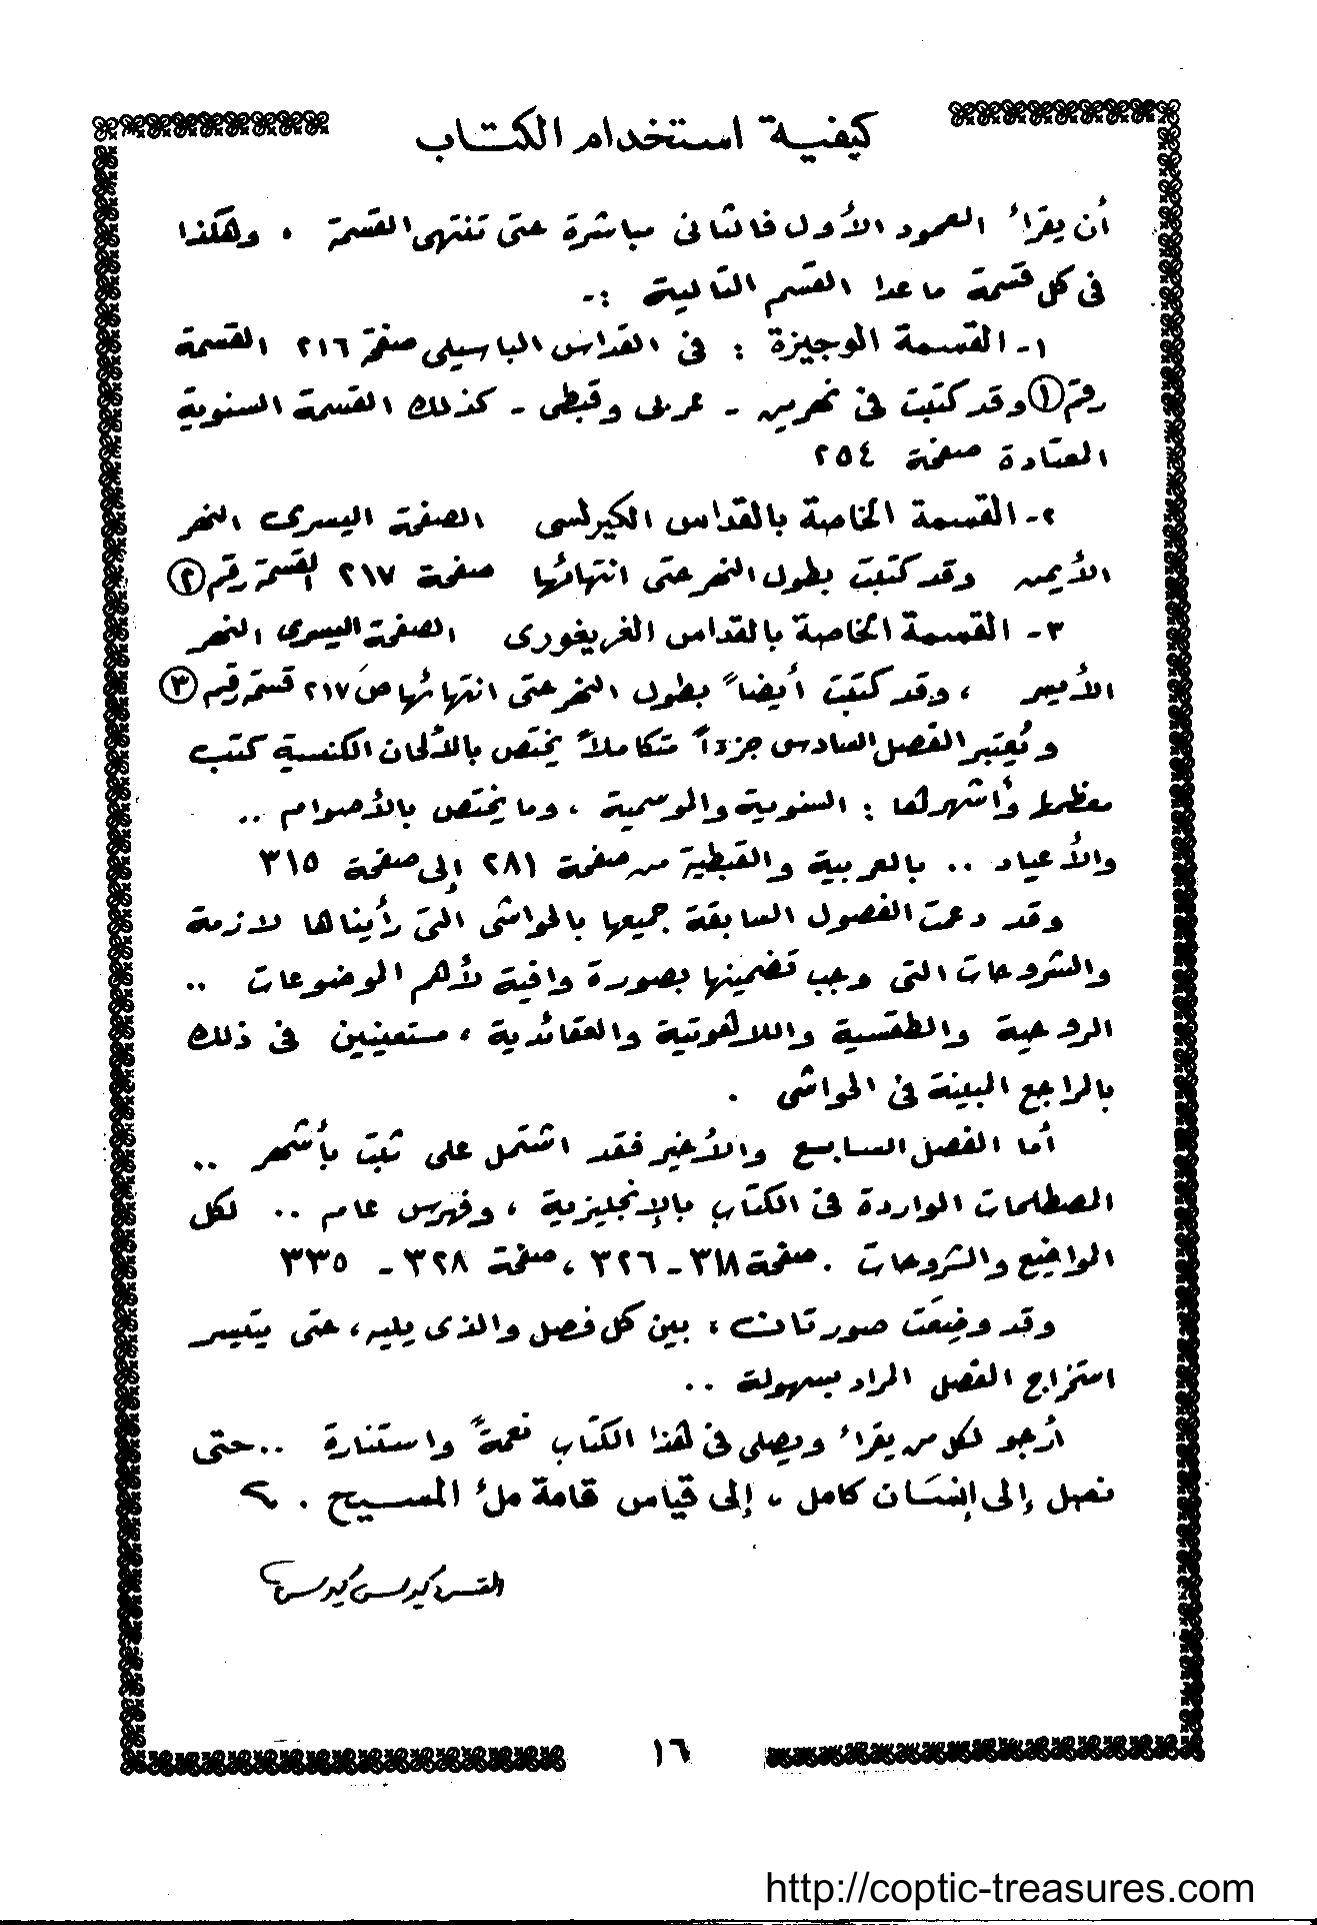 كيفية استخدام الكتاب
أن يقرأ العمود الأول فالثانى مباشرة حتى تنتهى القسمة ، وهكذا
فى كل قسمة ما عدا القسم التالية :-
١- القسمة الوجيزة : فى القداس الباسيلى صفحة ٢١٦ القسمة
رقم ① وقد كتبت فى نهرين - عربى وقبطى - كذلك القسمة السنوية
المعتادة صفحة ٢٥٤
٢- القسمة الخاصة بالقداس الكيرلسى الصفحة اليسرى النهر
الأيمن وقد كتبت بطول النهر حتى انتهائها صفحة ٢١٧ القسمة رقم ②
٣- القسمة الخاصة بالقداس الغريغورى الصفحة اليسرى النهر
الأيسر ، وقد كتبت أيضاً بطول النهر حتى انتهائها ص ٢١٧ قسمة رقم ③
ويُعتبر الفصل السادس جزءاً متكاملاً يختص بالألحان الكنسية كتب
معظمها وأشهرها : السنوية والموسمية ، وما يختص بالأصوام ..
والأعياد .. بالعربية والقبطية من صفحة ٢٨١ إلى صفحة ٣١٥
وقد دعمت الفصول السابقة جميعها بالحواشى التى رأيناها لازمة
والشروحات التى وجب تضمينها بصورة وافية لأهم الموضوعات ..
الروحية والطقسية واللاهوتية والعقائدية ، مستعينين فى ذلك
بالمراجع المبينة فى الحواشى .
أما الفصل السابع والأخير فقد اشتمل على ثبت بأشهر ..
المصطلحات الواردة فى الكتاب بالإنجليزية ، وفهرس عام .. لكل
المواضيع والشروحات . صفحة ٣١٨ - ٣٢٦ ، صفحة ٣٢٨ - ٣٣٥
وقد وضِعَت صورتان : بين كل فصل والذى يليه ، حتى يتيسر
استخراج الفصل المراد بسهولة ..
أرجو لكل من يقرأ ويصلى فى هذا الكتاب نعمةً واستنارة .. حتى
نصل إلى إنسَان كامل ، إلى قياس قامة ملئ المسيح .
القس كيرلس كيرلس
١٦
http://coptic-treasures.com